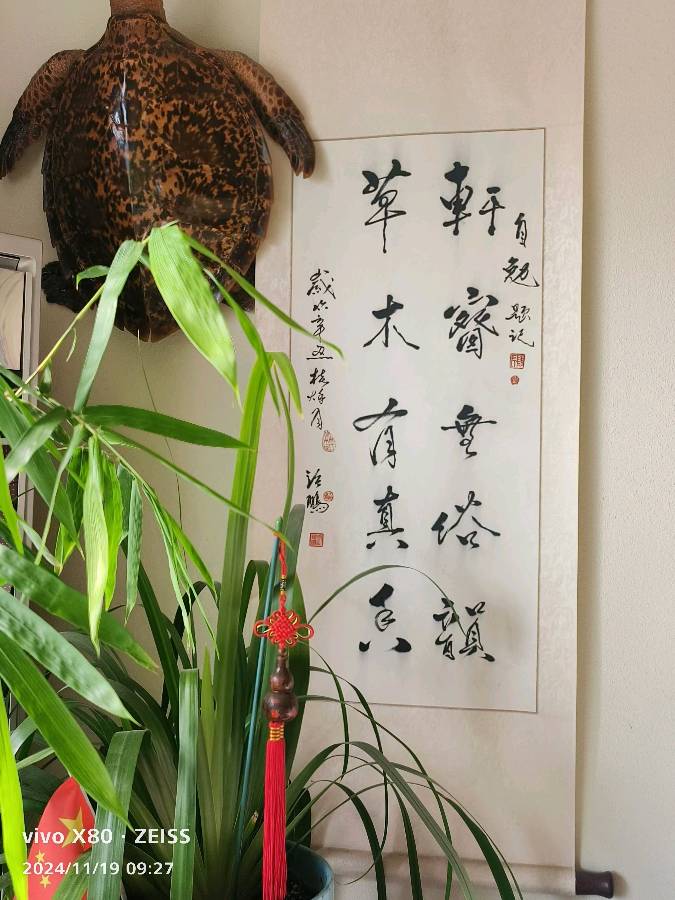 自勉題記
軒窗無俗韻
草木有真香
歲次辛丑桂
vivo X80 · ZEISS
2024/11/19 09:27